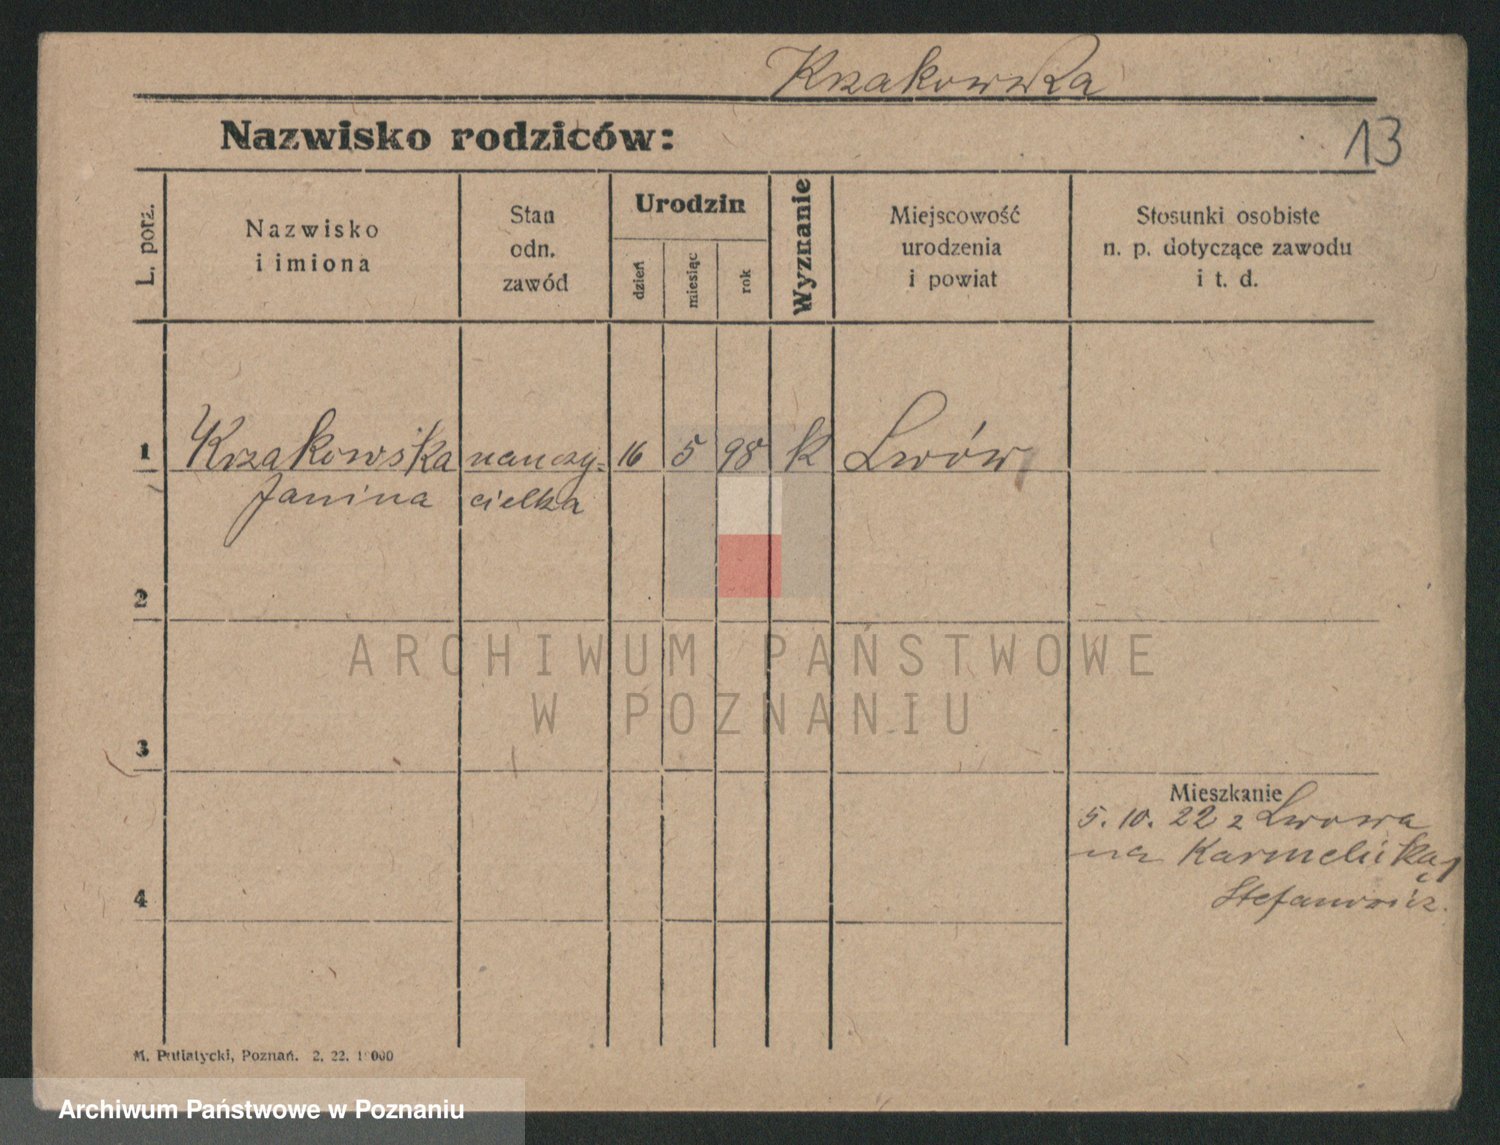 Krzakowska
Nazwisko rodziców:
13
L. porz.
Nazwisko
i imiona
Stan
odn.
zawód
Urodzin
dzień
miesiąc
rok
Wyznanie
Miejscowość
urodzenia
i powiat
Stosunki osobiste
n. p. dotyczące zawodu
i t. d.
1 Krzakowska nauczy= 16 5 98 k Lwów
Janina cielka
2
ARCHIWUM PAŃSTWOWE
W POZNANIU
3
Mieszkanie
5. 10. 22 z Lwowa
na Karmelicką 1
Stefanowicz.
4
M. Putiatycki, Poznań. 2. 22. 1 000
Archiwum Państwowe w Poznaniu